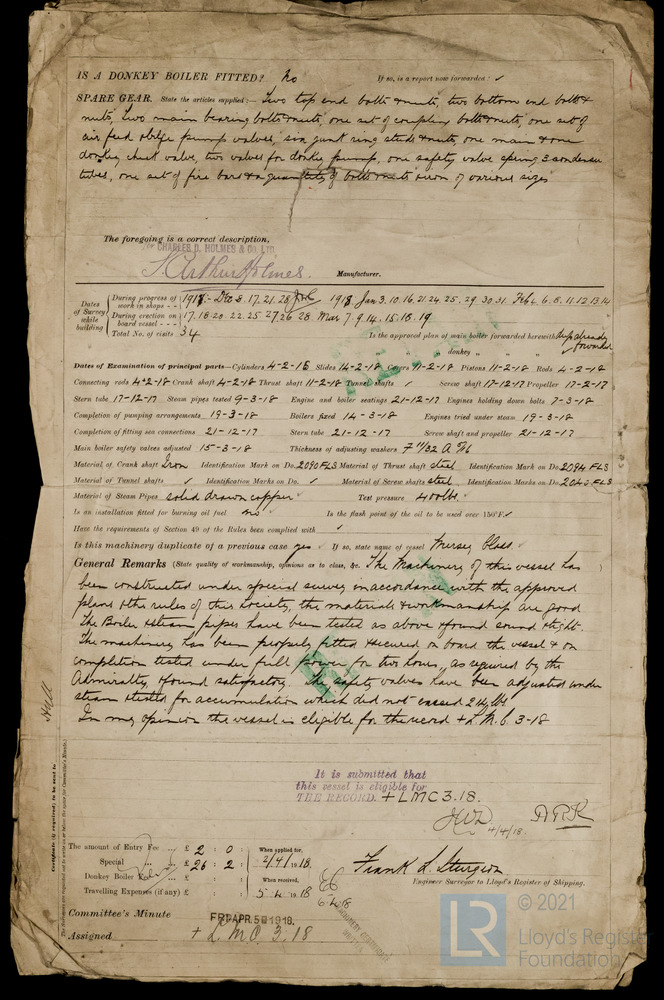 IS A DONKEY BOILER FITTED? No If so, is a report now forwarded? ✓
SPARE GEAR. State the articles supplied:— Two top end bolts & nuts, two bottom end bolts &
nuts, two main bearing bolts & nuts, one set of coupling bolts & nuts, one set of
air feed & bilge pump valves, six junk ring studs & nuts, one main & one
donkey check valve, two valves for donkey pump, one safety valve spring 3 condenser
tubes, one set of fire bars & a quantity of bolts & nuts & iron of various sizes
The foregoing is a correct description,
CHARLES D. HOLMES & Co. LTD.
J. Arthur Holmes. Manufacturer.
Dates of Survey while building
During progress of work in shops - - 1917. Dec 3. 17. 21. 28 1918 Jan 3. 10. 16. 21. 24. 25. 29. 30. 31 Feb 4. 6. 8. 11. 12. 13. 14
During erection on board vessel - - - 17. 18. 20. 22. 25. 27. 26. 28 Mar 7. 9. 14. 15. 18. 19
Total No. of visits 34 Is the approved plan of main boiler forwarded herewith already forwarded
" " " donkey " " "
Dates of Examination of principal parts—Cylinders 4-2-18 Slides 14-2-18 Covers 11-2-18 Pistons 11-2-18 Rods 4-2-18
Connecting rods 4-2-18 Crank shaft 4-2-18 Thrust shaft 11-2-18 Tunnel shafts ✓ Screw shaft 17-12-17 Propeller 17-2-17
Stern tube 17-12-17 Steam pipes tested 9-3-18 Engine and boiler seatings 21-12-17 Engines holding down bolts 7-3-18
Completion of pumping arrangements 19-3-18 Boilers fixed 14-3-18 Engines tried under steam 19-3-18
Completion of fitting sea connections 21-12-17 Stern tube 21-12-17 Screw shaft and propeller 21-12-17
Main boiler safety valves adjusted 15-3-18 Thickness of adjusting washers 7 11/32
Material of Crank shaft Iron Identification Mark on Do. 2090 FLS Material of Thrust shaft steel Identification Mark on Do. 2094 FLS
Material of Tunnel shafts ✓ Identification Marks on Do. ✓ Material of Screw shafts steel Identification Marks on Do. 2040 FLS
Material of Steam Pipes solid drawn copper Test pressure 400 lbs.
Is an installation fitted for burning oil fuel no Is the flash point of the oil to be used over 150°F. ✓
Have the requirements of Section 49 of the Rules been complied with ✓
Is this machinery duplicate of a previous case yes If so, state name of vessel Mersey Class.
General Remarks (State quality of workmanship, opinions as to class, &c. The Machinery of this vessel has
been constructed under special survey in accordance with the approved
plans & the rules of this Society, the materials & workmanship are good
The Boiler & steam pipes have been tested as above & found sound & tight.
The machinery has been properly fitted & secured on board the vessel & on
completion tested under full power for two hours, as required by the
Admiralty & found satisfactory. The safety valves have been adjusted under
steam & tested for accumulation which did not exceed
In my opinion the vessel is eligible for the record + L.M.C. 3-18
Hull
Certificate (if required) to be sent to
It is submitted that
this vessel is eligible for
THE RECORD. + LMC 3.18.
4/4/18.
The amount of Entry Fee ... £ 2 : 0 : When applied for,
Special ... ... £ 26 : 2 : 2/4/ 19 18.
Donkey Boiler Fee ... £ : : When received,
Travelling Expenses (if any) £ : : 5-4- 19 18
6.4.18
Frank L. Sturgeon
Engineer Surveyor to Lloyd's Register of Shipping.
Committee's Minute FRI. APR. 5 1918.
Assigned + L.M.C. 3.18
LR
© 2021
Lloyd's Register
Foundation